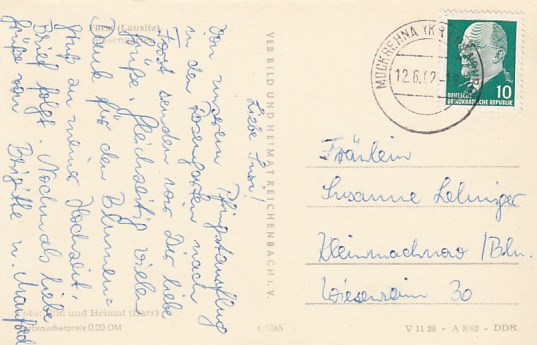 Forst (Lausitz)
Rosengarten
Liebe Susi!
Von unserem Pfingstausflug
in den Rosengarten nach
Forst senden wir Dir liebe
Grüße. Gleichzeitig vielen
Dank für den Blumen-
gruß zu meiner Hochzeit.
Brief folgt. Nochmals liebe
Grüße von Brigitte u. Manfred
Foto: Bild und Heimat (Darr)
Verbraucherpreis 0,20 DM
VEB BILD UND HEIMAT REICHENBACH I. V.
MOCKREHNA (KR
12.6.62
DEUTSCHE
DEMOKRATISCHE REPUBLIK
10
Fräulein
Susanne
Kleinmachnow / Bln.
Wiesenrain 30
V 11 28 - A 3/62 - DDR